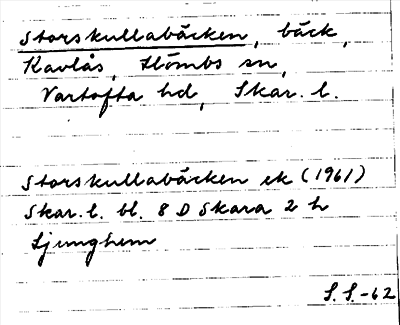 Storskullabäcken, bäck,
Kavlås, Hömbs sn,
Vartofta hd, Skar. l.
Storskullabäcken ek (1961)
Skar. l. bl. 8 D Skara 2 h
Ljunghem
S. S.-62